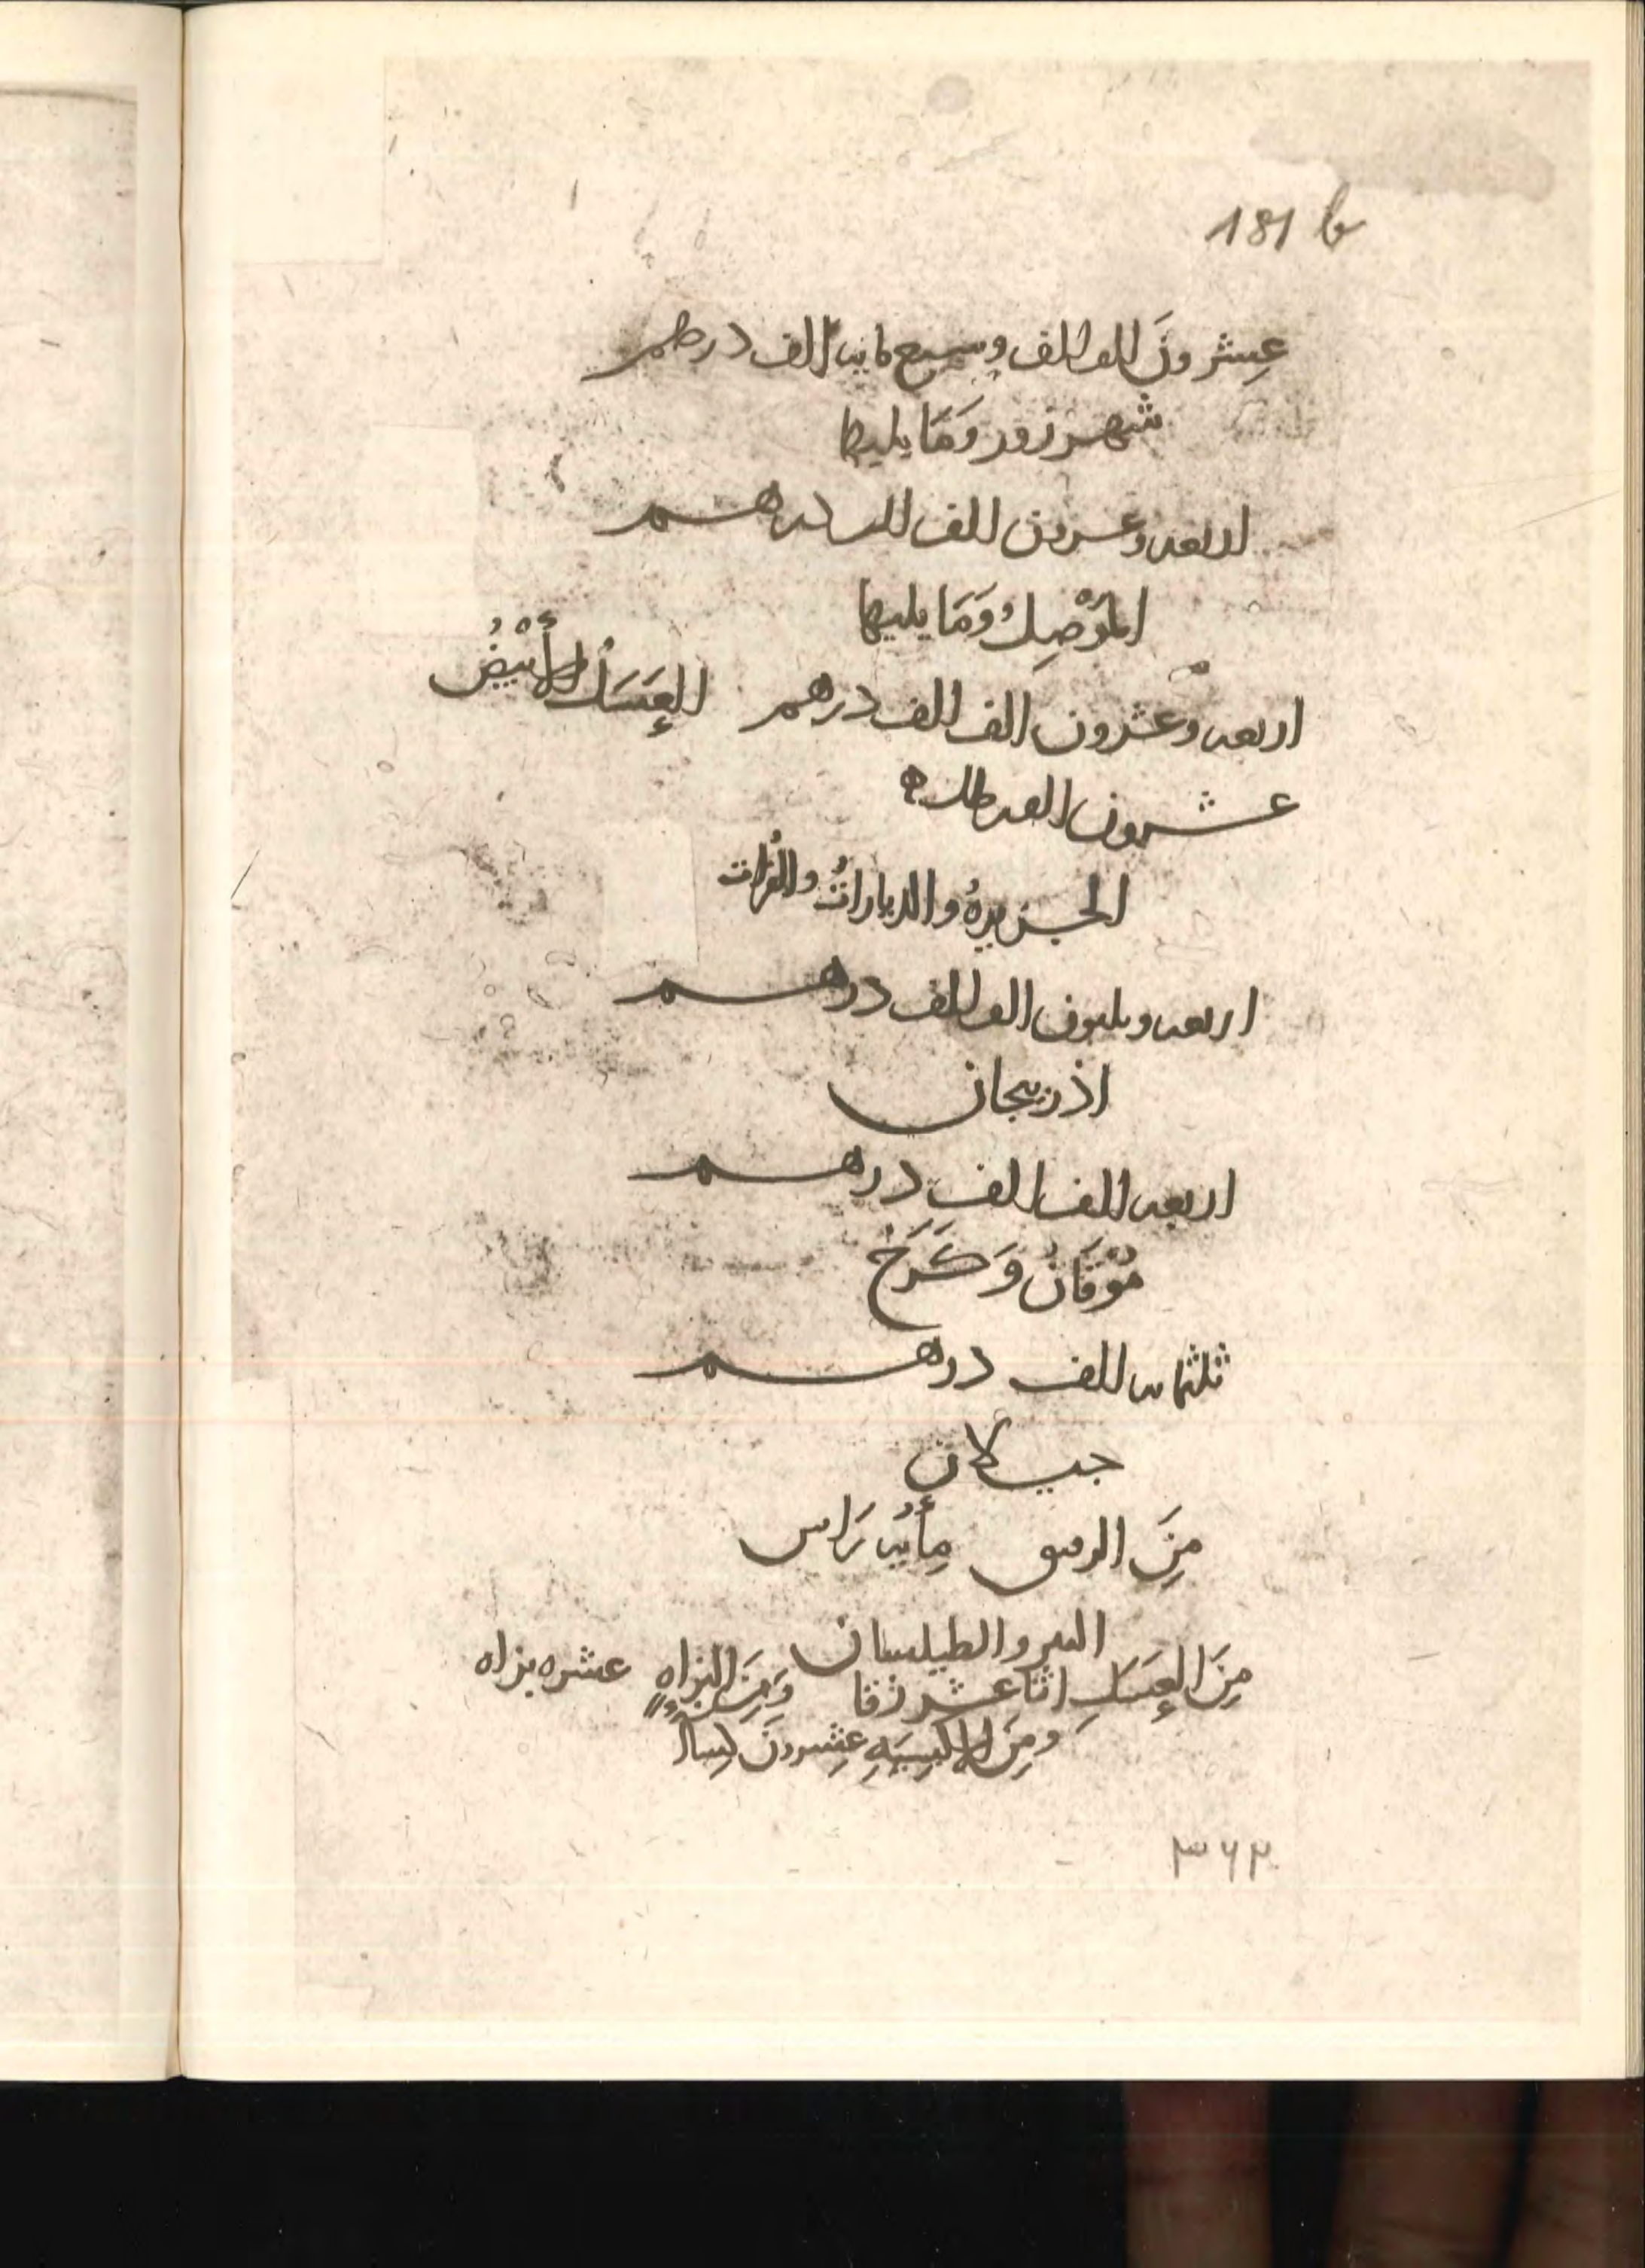 181 b
عِشرونَ الف الف وسبع مايه الف درهم
شهرزور وَمَا يليها
اربعه وعسرين الف الف درهم
المَوْصِلُ وَمَا يليها
اربعه وعشرون الف الف درهم العَسَلُ الأَبْيَضُ
عشرون الف رطل
الجزيرهُ والديارات والفُرات
اربعه وثلثون الف الف درهم
اذربيجان
اربعه الف الف درهم
مُوْقَانُ وَكَرَخ
ثلثمايه الف درهم
جيلان
مِنَ الرقيق مِأيه رَاس
الببر والطيلسان
مِنَ العَسَلِ اثنا عشر زقا وَمِنَ البزاهِ عشره بزاه
ومِنَ الاكسِيَهِ عِشرونَ كساً
٣٦٢